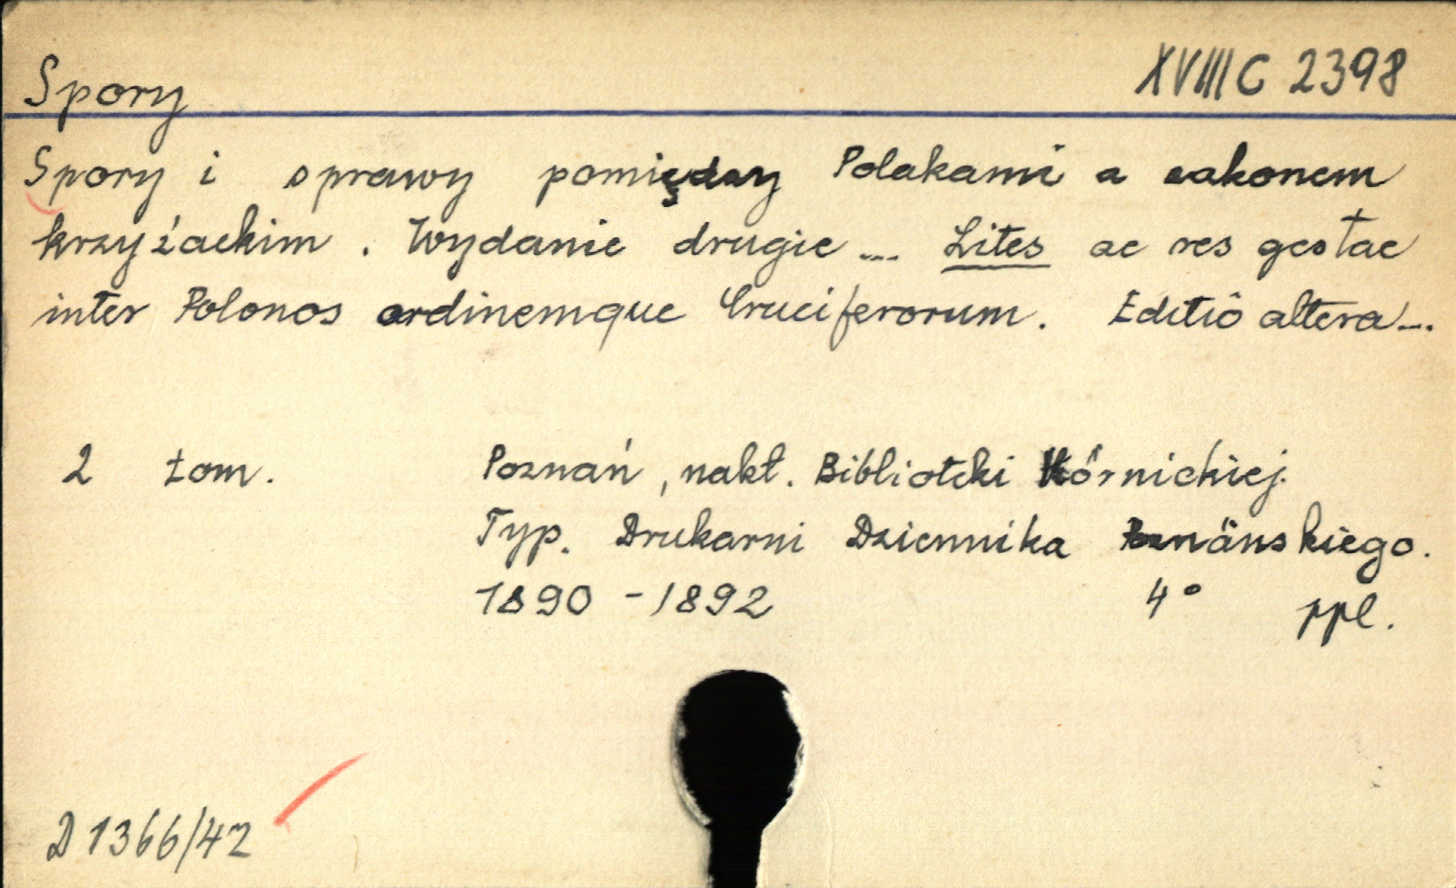 Spory
XVIII C 2398
Spory i sprawy pomiędzy Polakami a zakonem
krzyżackim. Wydanie drugie ... Lites ac res gestae
inter Polonos ordinemque Cruciferorum. Editio altera...
2 tom.
Poznań, nakł. Biblioteki Kórnickiej.
Typ. Drukarni Dziennika Poznańskiego.
1890 - 1892
4°
ppl.
D 1366/42